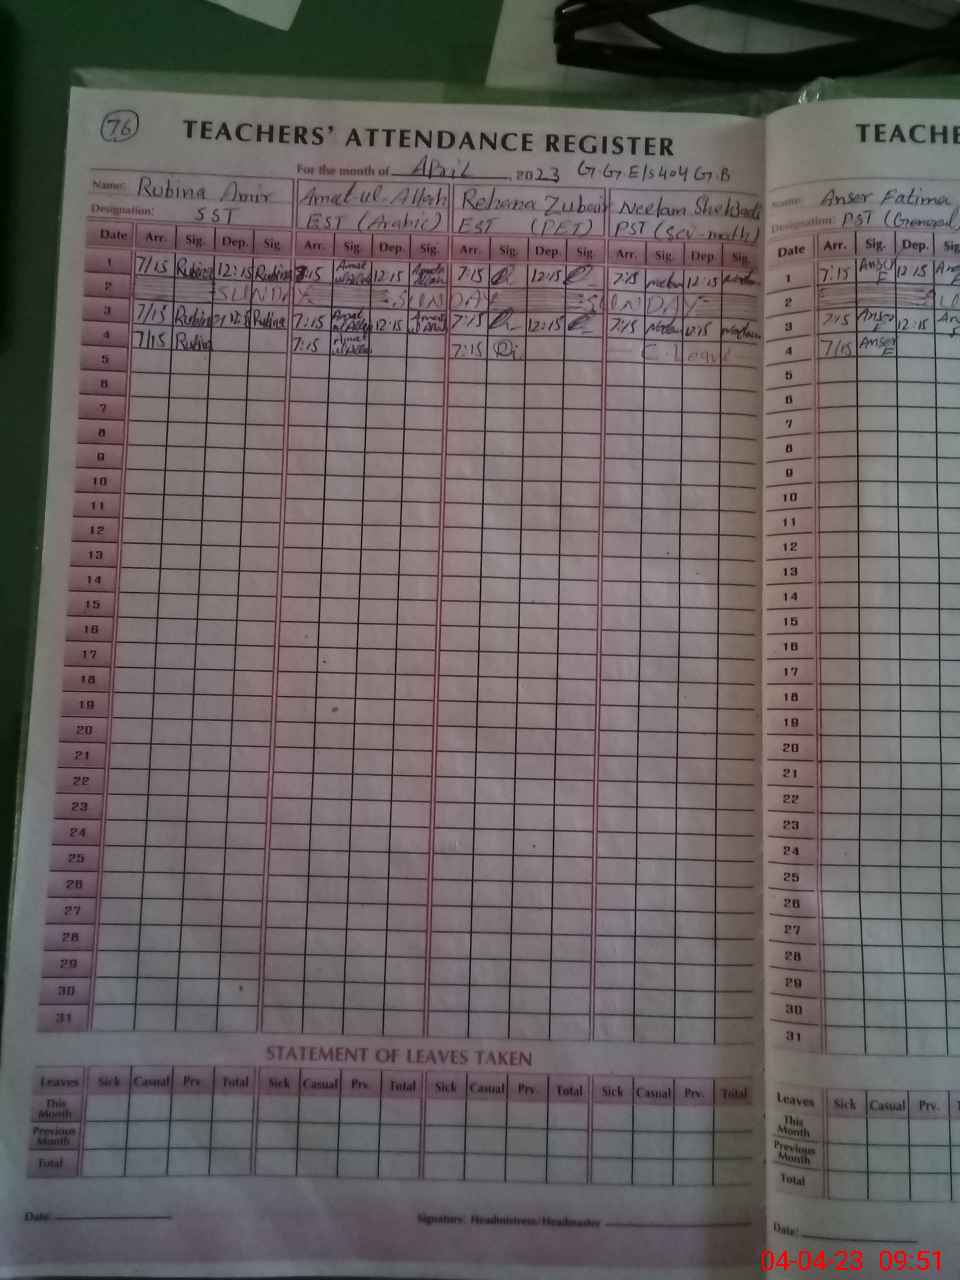 76
TEACHERS' ATTENDANCE REGISTER
For the month of April, 2023 G.G.E/S 404 G.B
Name: Rubina Amir Amat-ul-Allah Rehana Zubair Neelam Shehzadi
Designation: SST EST (Arabic) EST (PET) PST (Sci-math)
Date Arr. Sig. Dep. Sig. Arr. Sig. Dep. Sig. Arr. Sig. Dep. Sig. Arr. Sig. Dep. Sig.
1 7/15 Rubina 12:15 Rubina 7:15 12:15 7:15 12:15 7:15 12:15
2 SUNDAY SUNDAY SUNDAY
3 7/15 Rubina 12:15 Rubina 7:15 12:15 7:15 12:15 7:15 12:15
4 7/15 Rubina 7:15 7:15 C. Leave
5
6
7
8
9
10
11
12
13
14
15
16
17
18
19
20
21
22
23
24
25
26
27
28
29
30
31
STATEMENT OF LEAVES TAKEN
Leaves Sick Casual Prv. Total Sick Casual Prv. Total Sick Casual Prv. Total Sick Casual Prv. Total
This Month
Previous Month
Total
Date:
Signature: Headmistress/Headmaster
TEACHE
Name: Anser Fatima
Designation: PST (General)
Date Arr. Sig. Dep. Sig
1 7:15 Anser F 12:15
2
3 7:15 Anser F 12:15
4 7/15 Anser F
5
6
7
8
9
10
11
12
13
14
15
16
17
18
19
20
21
22
23
24
25
26
27
28
29
30
31
Leaves Sick Casual Prv.
This Month
Previous Month
Total
Date:
04-04-23 09:51